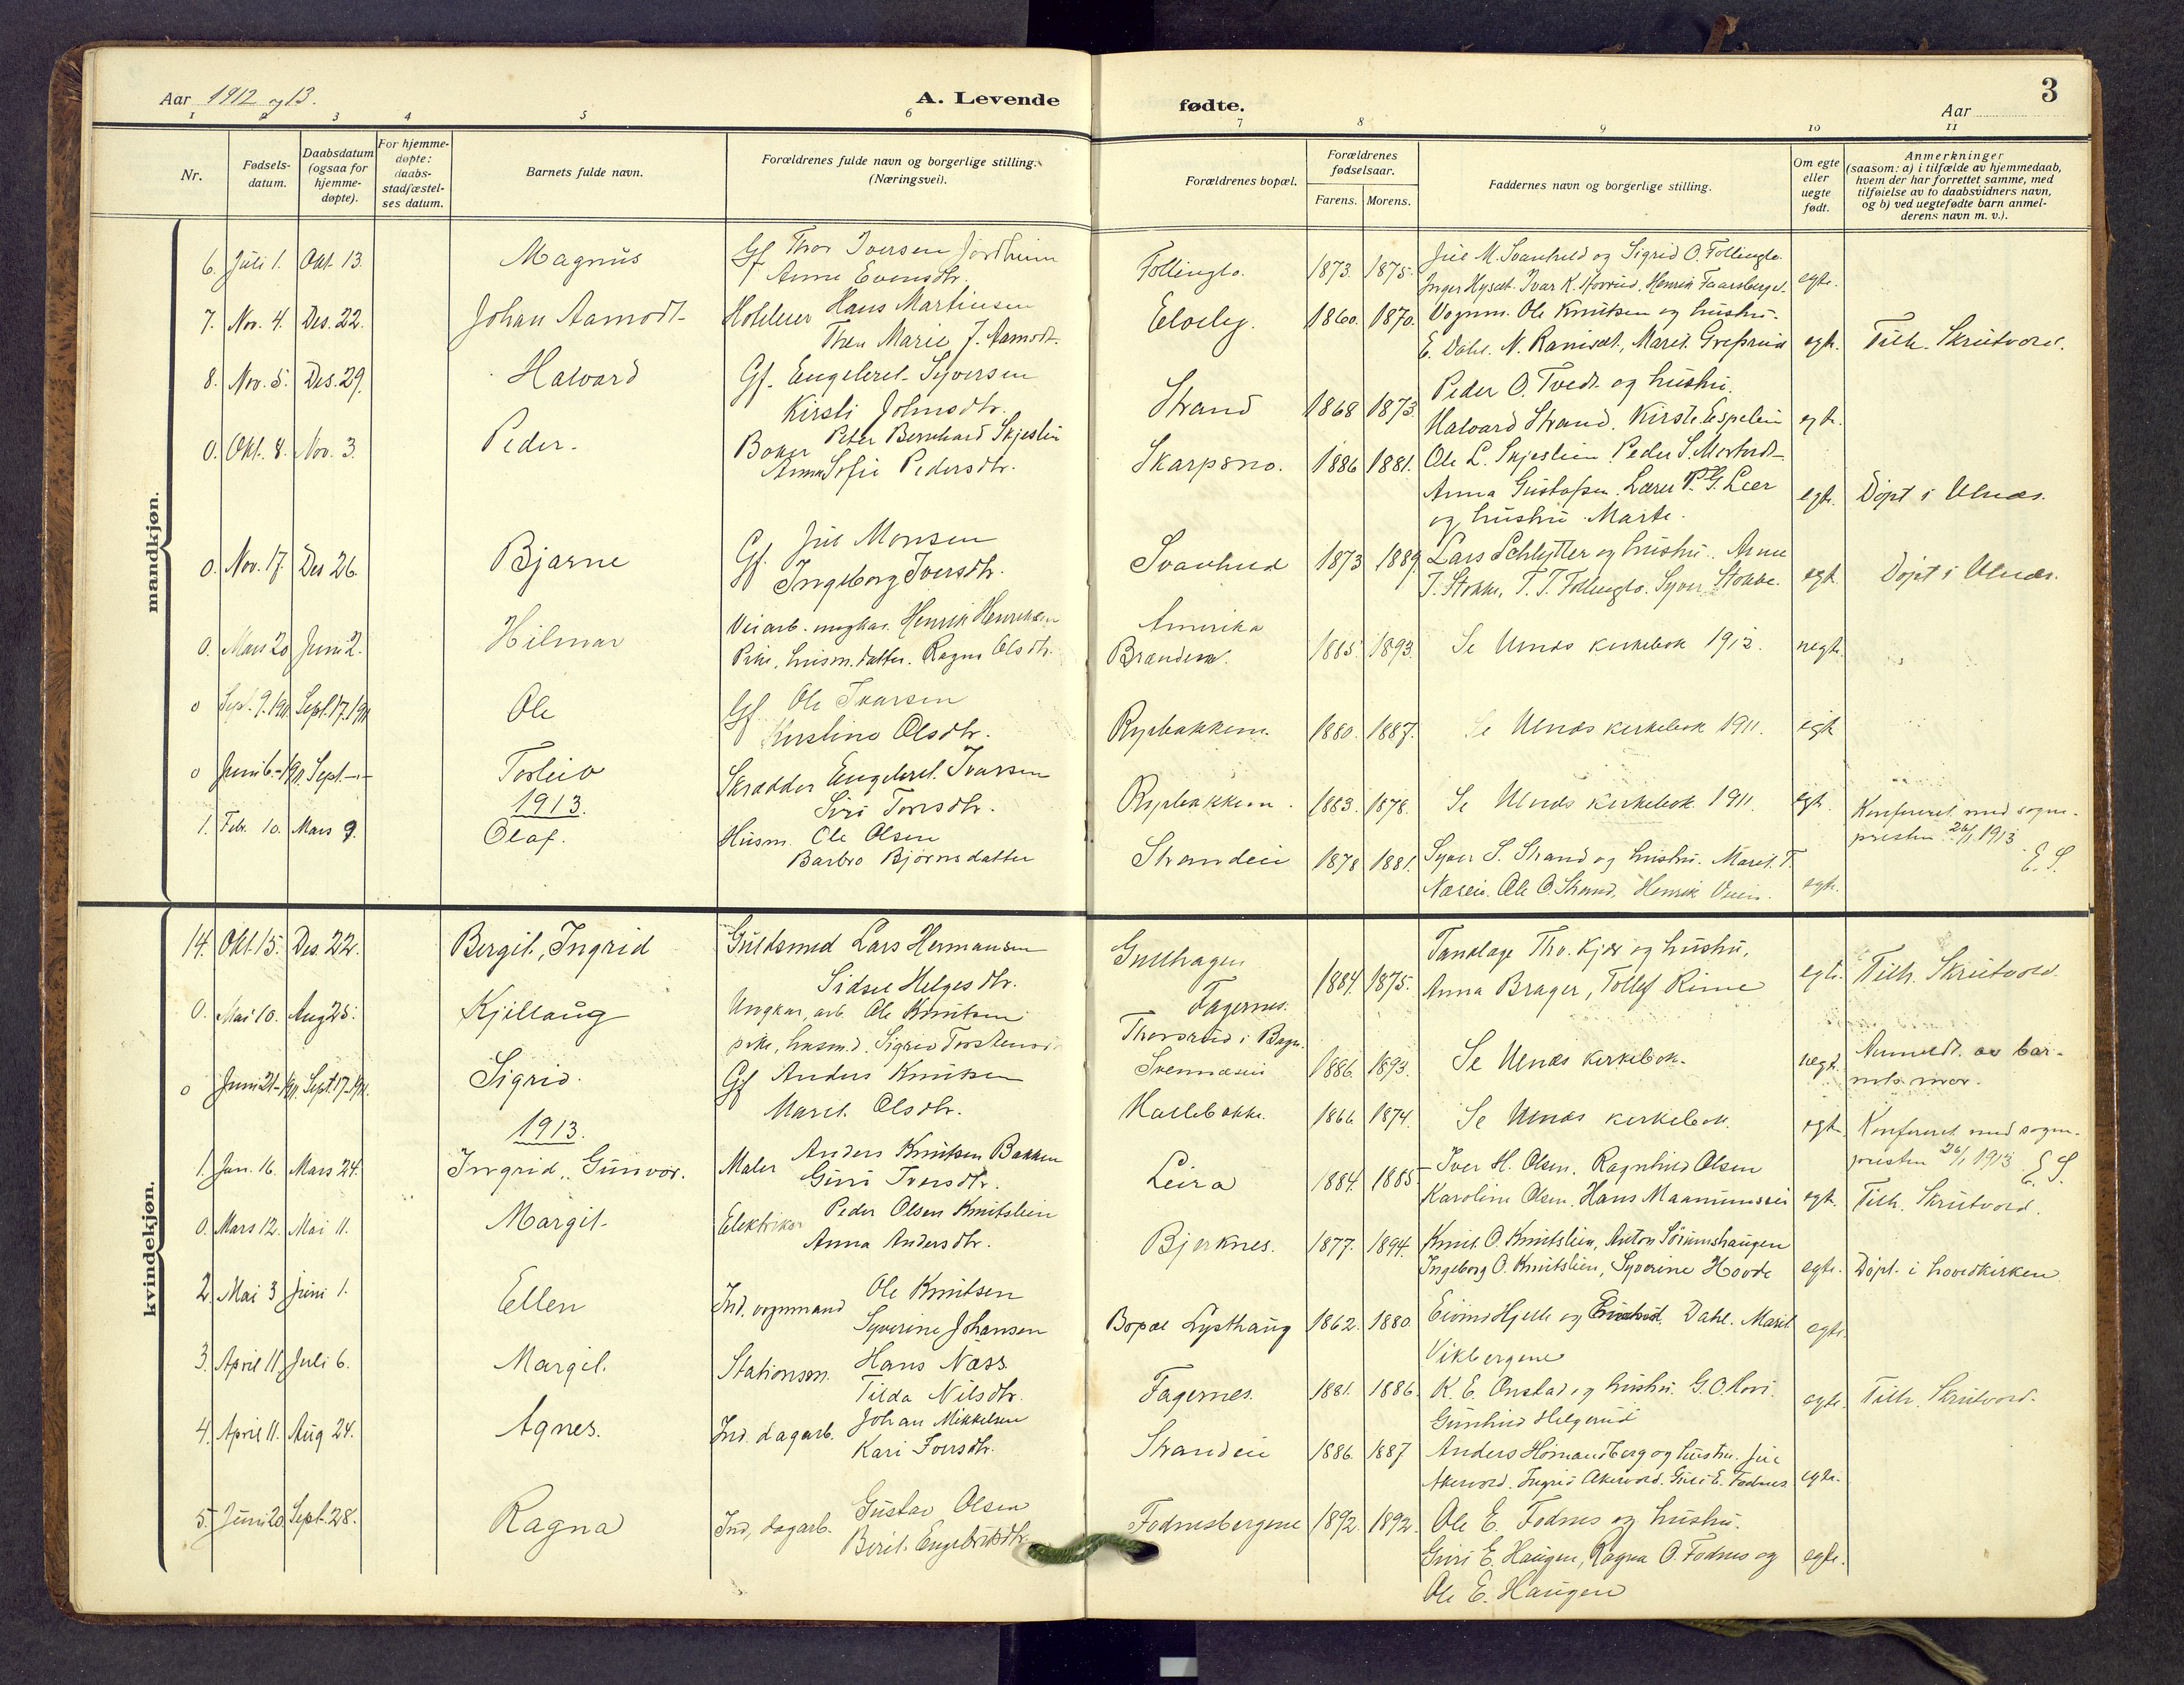 Aar 1912 og 13.
A. Levende fødte.
Aar
3
1 2 3 4 5 6 7 8 9 10 11
Nr.
Fødsels-
datum.
Daabsdatum
(ogsaa for
hjemme-
døpte).
For hjemme-
døpte:
daabs-
stadfæstel-
ses datum.
Barnets fulde navn.
Forældrenes fulde navn og borgerlige stilling.
(Næringsvei).
Forældrenes bopæl.
Forældrenes
fødselsaar.
Farens. Morens.
Faddernes navn og borgerlige stilling.
Om egte
eller
uegte
født.
Anmerkninger
(saasom: a) i tilfælde av hjemmedaab,
hvem der har forrettet samme, med
tilføielse av to daabsvidners navn,
og b) ved uegtefødte barn anmel-
derens navn m. v.).
mandkjøn.
6. Juli 1. Okt. 13. Magnus Gf Thor Iversen Jordheim
Anne Evensdtr.
Follinglo. 1873. 1875. Jul M. Svanhild og Sigrid O. Follinglo.
egte.
7. Nov. 4. Des. 22. Johan Aamodt Hoteleier Hans Martinsen
Thea Marie J. Aamodt.
Elvelng. 1860. 1870. Vognm. Ole Knutsen og hustru.
E. Dahl. N. Ranisæt, Marit Grefsrud egte. Tilh. Skrutvold.
8. Nov. 5. Des. 29. Halvard Gf. Engebret Syversen
Kirsti Johnsdtr.
Strand 1868 1873 Peder O. Tvedt og hustru.
Halvard Strand. Kirsti Espelien egte.
0. Okt. 8. Nov. 3. Peder. Baker Peter Bernhard Skjeslien
Anna Sofie Pedersdtr.
Skarpsno. 1886 1881. Ole L. Skjeslien. Peder S.
Anna Gustafsen. Lærer P. G. Leer
og hustru Marte. egte. Døpt i Ulnæs.
0. Nov. 17. Des 26. Bjarne Gf. Jul Monsen
Ingeborg Iversdtr.
Svanhild 1873 1889 Lars Schlytter og hustru. Anne
T. Stokke, T. T. Follinglo. Syver Stokke. egte. Døpt i Ulnæs.
0. Mars 20 Juni 2. Hilmar Veiarb. ungkar. Henrik Henriksen
Pike, husm. datter. Ragna Olsdtr.
Amerika
Brændera. 1885. 1893. Se Ulnæs kirkebok 1912. uegte.
0 Sept. 9. 1911. Sept. 17. 1911 Ole Gf Ole Ivarsen
Kirstine Olsdtr.
Rypbakken. 1880. 1887. Se Ulnæs kirkebok 1911. egte
0 Juni 6. 1911 Sept. —"— Torleiv Skrædder Engebret Ivarsen
Siri Torsdtr.
Rypbakken. 1883. 1878. Se Ulnæs kirkebok 1911. egte. Konfereret med sogne-
presten 26/1 1913
E. S.
1913.
1. Febr. 10. Mars 9. Olaf. Husm. Ole Olsen
Barbro Bjørnsdatter
Strandeie 1878 1881. Syver S. Strand og hustru. Marit T.
Næseie. Ole O. Strand, Henrik egte.
kvindekjøn.
14. Okt. 15. Des. 22. Bergit, Ingrid Guldsmed Lars Hermansen
Sidsel Helgesdtr.
Gullhagen
Fagernes. 1884. 1875. Tandlæge Thv. Kjær og hustru,
Anna Brager, Tollef Rime egte. Tilh. Skrutvold.
0. Mai 10. Aug 25. Kjellaug Ungkar, arb. Ole Knutsen
pike, husm.d. Sigrid Torstensd.
Thorsrud i Bagn.
1886. 1893. Se Ulnæs kirkebok. uegte. Anmeldt av bar-
nets mor.
0 Juni 21. 1911. Sept. 17. 1911. Sigrid. Gf Anders Knutsen
Marit Olsdtr.
Hallebakke. 1866. 1874. Se Ulnæs kirkebok. egte. Konfereret med sogne-
presten 26/1 1913 E. S.
1913.
1. Jan. 16. Mars 24. Ingrid, Gunvor. Maler Anders Knutsen Bakken
Guri Iversdtr.
Leira 1884. 1885 Iver H. Olsen. Ragnhild Olsen
Karoline Olsen. Hans egte. Tilh. Skrutvold.
0. Mars 12. Mai 11. Margit Elektriker Peder Olsen Knutslien
Anna Andersdtr.
Bjerknes. 1877. 1894. Knut O. Knutslien, Anton Sørumshaugen
Ingeborg O. Knutslien, Syverine Hovde egte. Døpt i hovedkirken
2. Mai 3 Juni 1. Ellen Ind. vognmand Ole Knutsen
Syverine Johansen
Bopæl Lysthaug 1862. 1880. Eivind Hjelle og Dahl. Marit
Vikbergene egte.
3. April 11. Juli 6. Margit. Stationsm. Hans Næss
Tilda Nilsdtr.
Fagernes. 1881. 1886. K. E. Onstad og hustru. G. O. Hovi.
Gunhild Helgerud egte. Tilh. Skrutvold.
4. April 11. Aug 24. Agnes. Ind. dagarb. Johan Mikkelsen
Kari Iversdtr.
Strandeie 1886. 1887 Anders og hustru. Jul
Akervold. Ingrid Akervold. Guri E. Fodnes. egte.
5. Juni 20. Sept. 28. Ragna Ind, dagarb. Gustav Olsen
Berit Engebretsdtr.
Fodnesbergene 1892. 1892. Ole E. Fodnes og hustru.
Guri E. Haugen, Ragna O. Fodnes og
Ole E. Haugen egte.